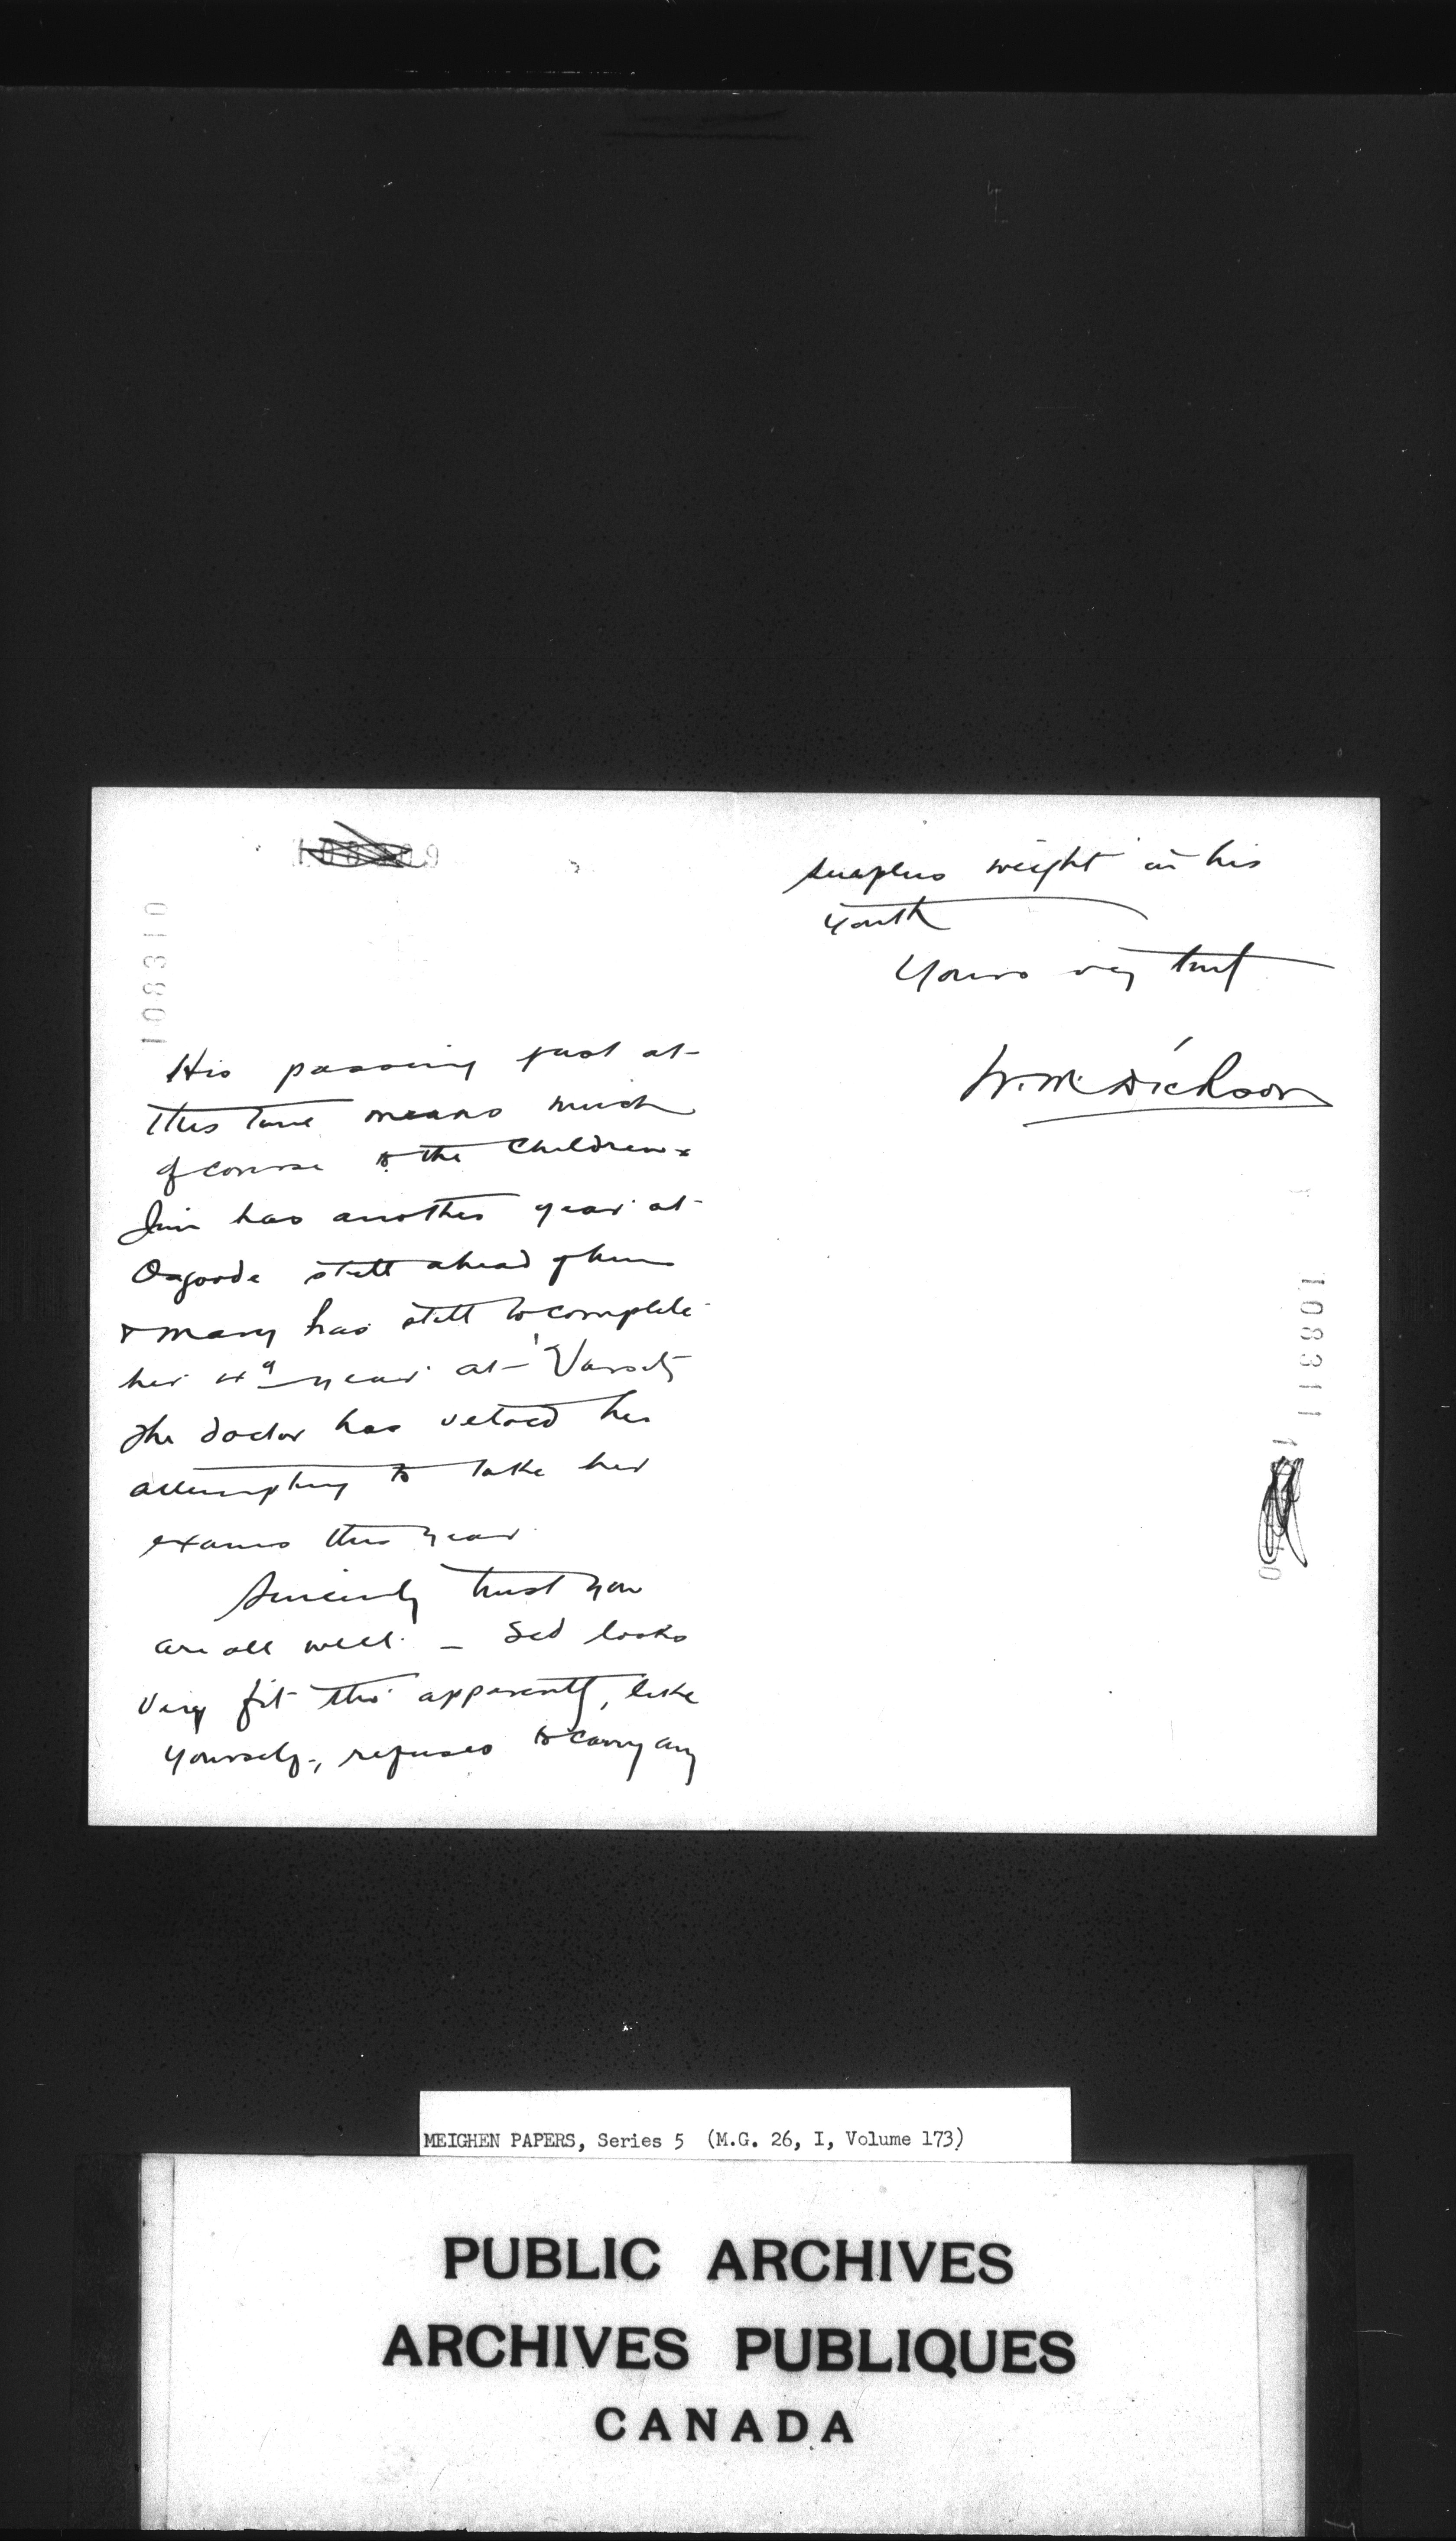 108310
His passing just at
this time means much
of course to the children
Jim has another year at
Osgoode still ahead of him
& Mary has still to complete
her 4th year at 'Varsity
The doctor has vetoed her
attempting to take her
exams this year
Sincerely trust you
are all well. — Ted looks
very fit tho' apparently, like
yourself, refuses to carry any
surplus weight in his
youth
Yours very truly
W. M. Dickson
108311
MEIGHEN PAPERS, Series 5 (M.G. 26, I, Volume 173)
PUBLIC ARCHIVES
ARCHIVES PUBLIQUES
CANADA